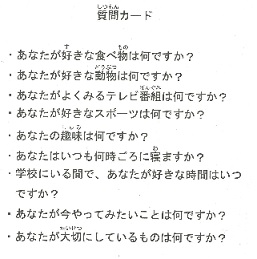 質問カード
・あなたが好きな食べ物は何ですか？
・あなたが好きな動物は何ですか？
・あなたがよくみるテレビ番組は何ですか？
・あなたが好きなスポーツは何ですか？
・あなたの趣味は何ですか？
・あなたはいつも何時ごろに寝ますか？
・学校にいる間で、あなたが好きな時間はいつ
ですか？
・あなたが今やってみたいことは何ですか？
・あなたが大切にしているものは何ですか？